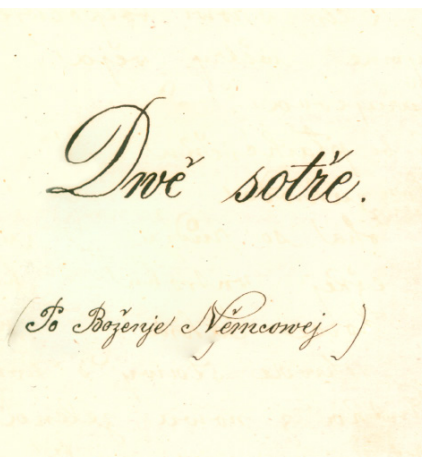 Dwě sotře.
(Po Boženje Němcowej)